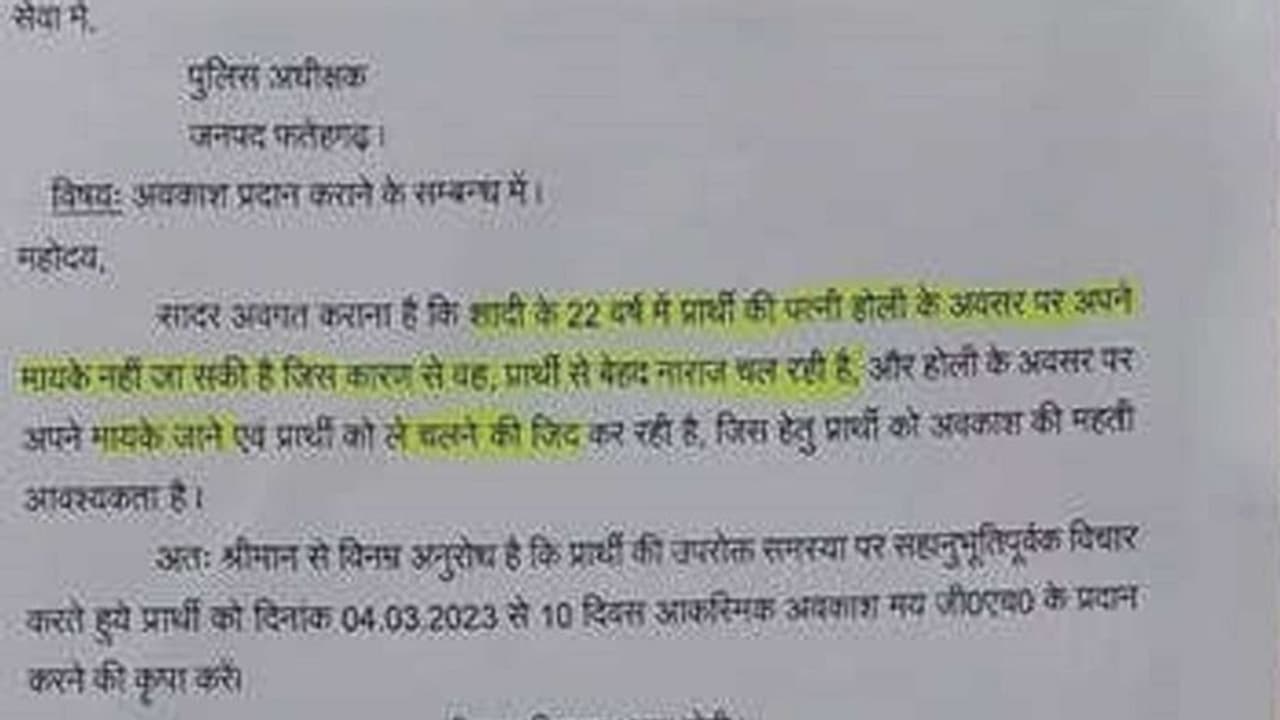 सेवा में,
पुलिस अधीक्षक
जनपद फतेहगढ़।
विषयः अवकाश प्रदान कराने के सम्बन्ध में।
महोदय,
सादर अवगत कराना है कि शादी के 22 वर्ष में प्रार्थी की पत्नी होली के अवसर पर अपने
मायके नहीं जा सकी है जिस कारण से वह, प्रार्थी से बेहद नाराज चल रही है, और होली के अवसर पर
अपने मायके जाने एवं प्रार्थी को ले चलने की जिद कर रही है, जिस हेतु प्रार्थी को अवकाश की महती
आवश्यकता है।
अतः श्रीमान से विनम्र अनुरोध है कि प्रार्थी की उपरोक्त समस्या पर सहानुभूतिपूर्वक विचार
करते हुये प्रार्थी को दिनांक 04.03.2023 से 10 दिवस आकस्मिक अवकाश मय जी0एच0 के प्रदान
करने की कृपा करें।